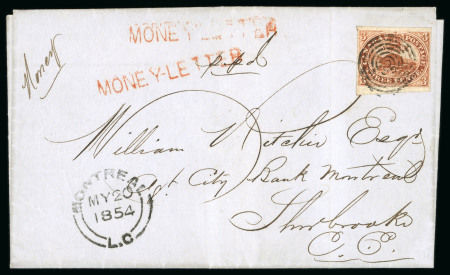 MONEY-LETTER
MONEY-LETTER
Money
paid
William Ritchie Esqr
Agt City Bank Montreal
Sherbrooke
C. E.
MONTREAL
MY 20
1854
L.C